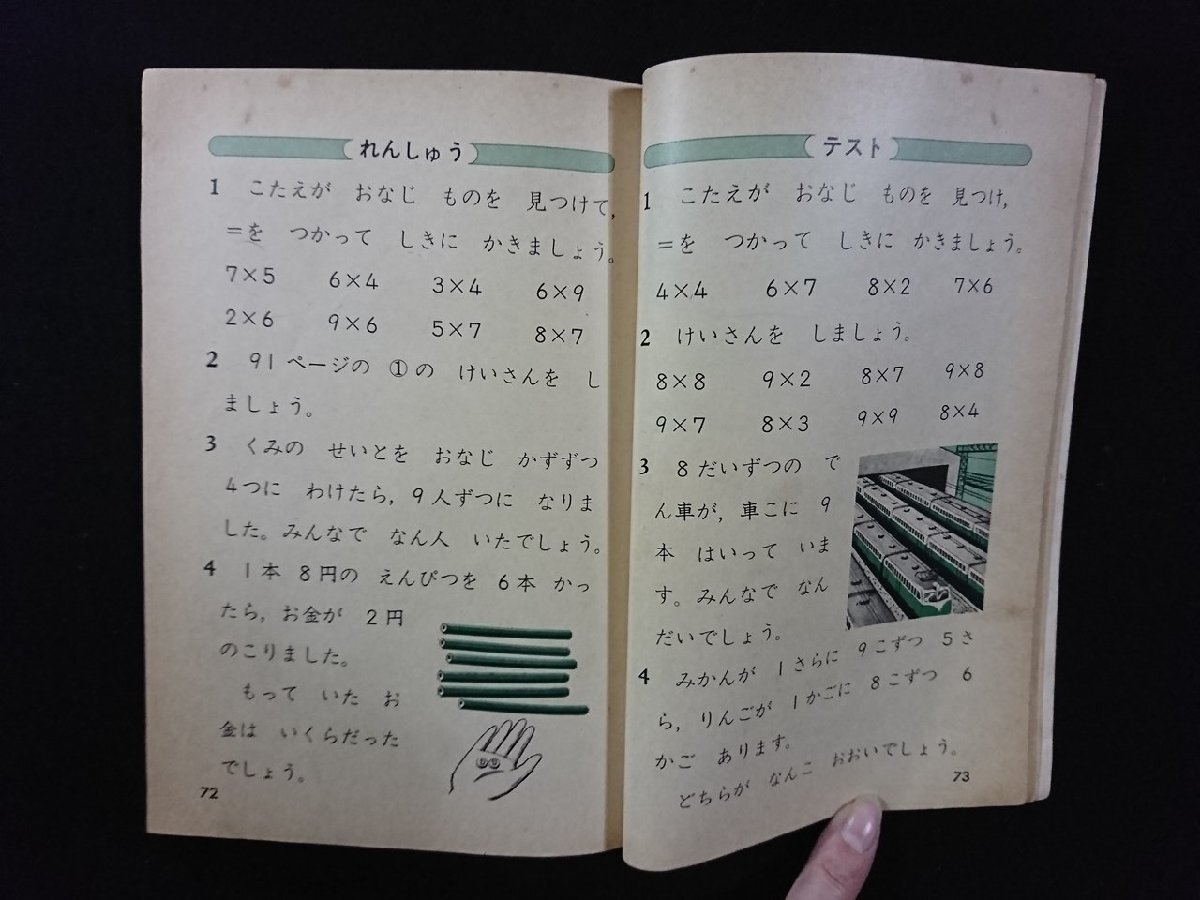 れんしゅう
1 こたえが おなじ ものを 見つけて,
=を つかって しきに かきましょう。
7×5 6×4 3×4 6×9
2×6 9×6 5×7 8×7
2 91ページの ①の けいさんを し
ましょう。
3 くみの せいとを おなじ かずずつ
4つに わけたら, 9人ずつに なりま
した。みんなで なん人 いたでしょう。
4 1本 8円の えんぴつを 6本 かっ
たら, お金が 2円
のこりました。
もって いた お
金は いくらだった
でしょう。
72
テスト
1 こたえが おなじ ものを 見つけ,
=を つかって しきに かきましょう。
4×4 6×7 8×2 7×6
2 けいさんを しましょう。
8×8 9×2 8×7 9×8
9×7 8×3 9×9 8×4
3 8だいずつの で
ん車が, 車こに 9
本 はいって いま
す。みんなで なん
だいでしょう。
4 みかんが 1さらに 9こずつ 5さ
ら, りんごが 1かごに 8こずつ 6
かご あります。
どちらが なんこ おおいでしょう。
73